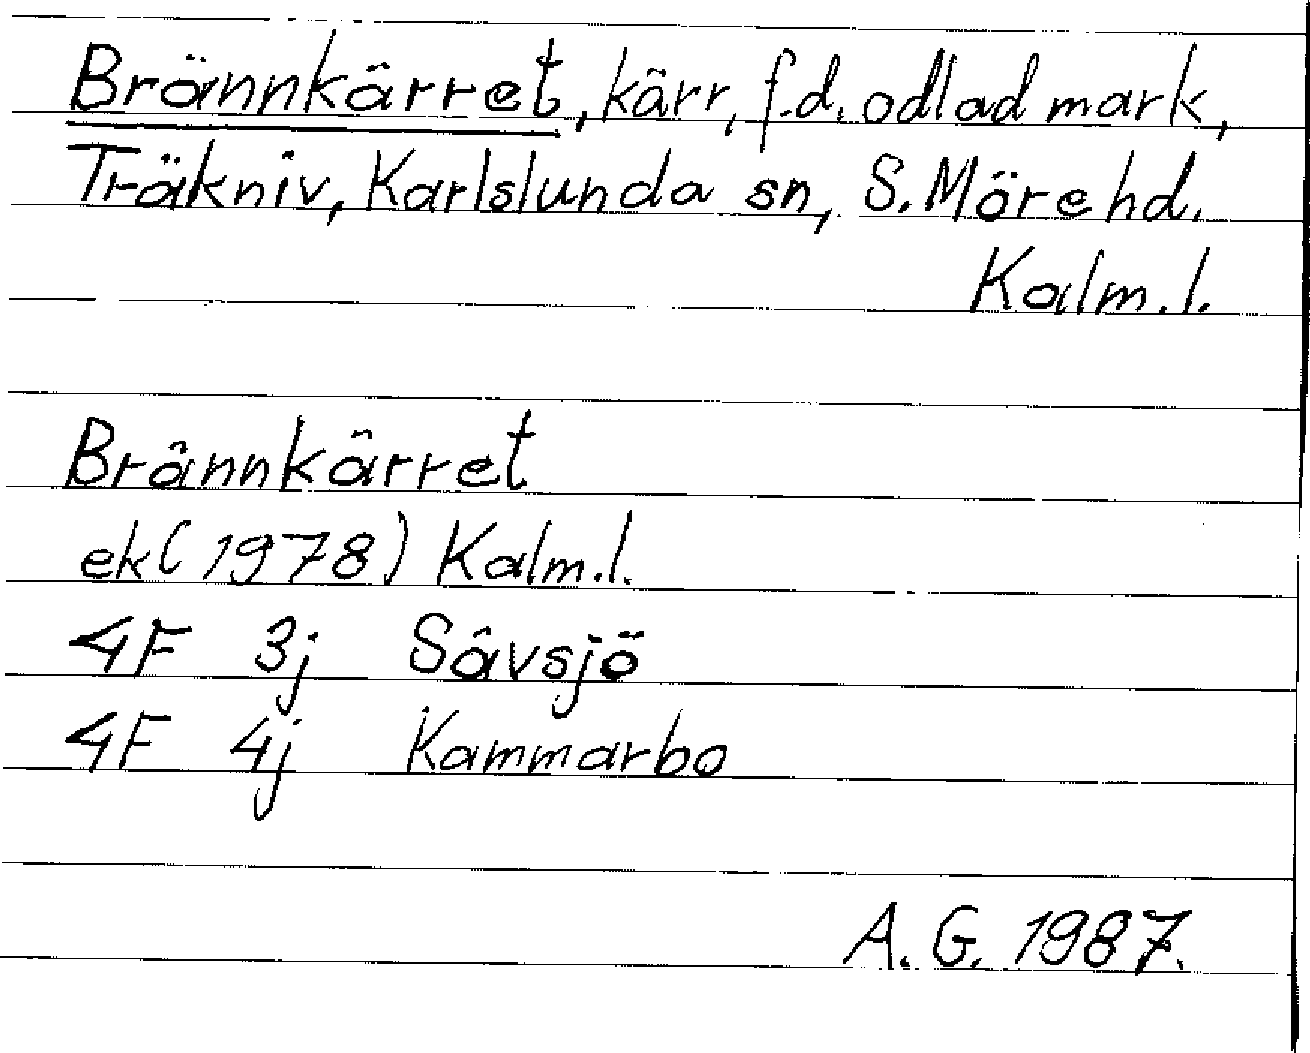 Brännkärret, kärr, f.d. odlad mark,
Träkniv, Karlslunda sn, S. Möre hd.
Kalm. l.
Brännkärret
ek (1978) Kalm. l.
4F 3j Sävsjö
4F 4j Kammarbo
A. G. 1987.